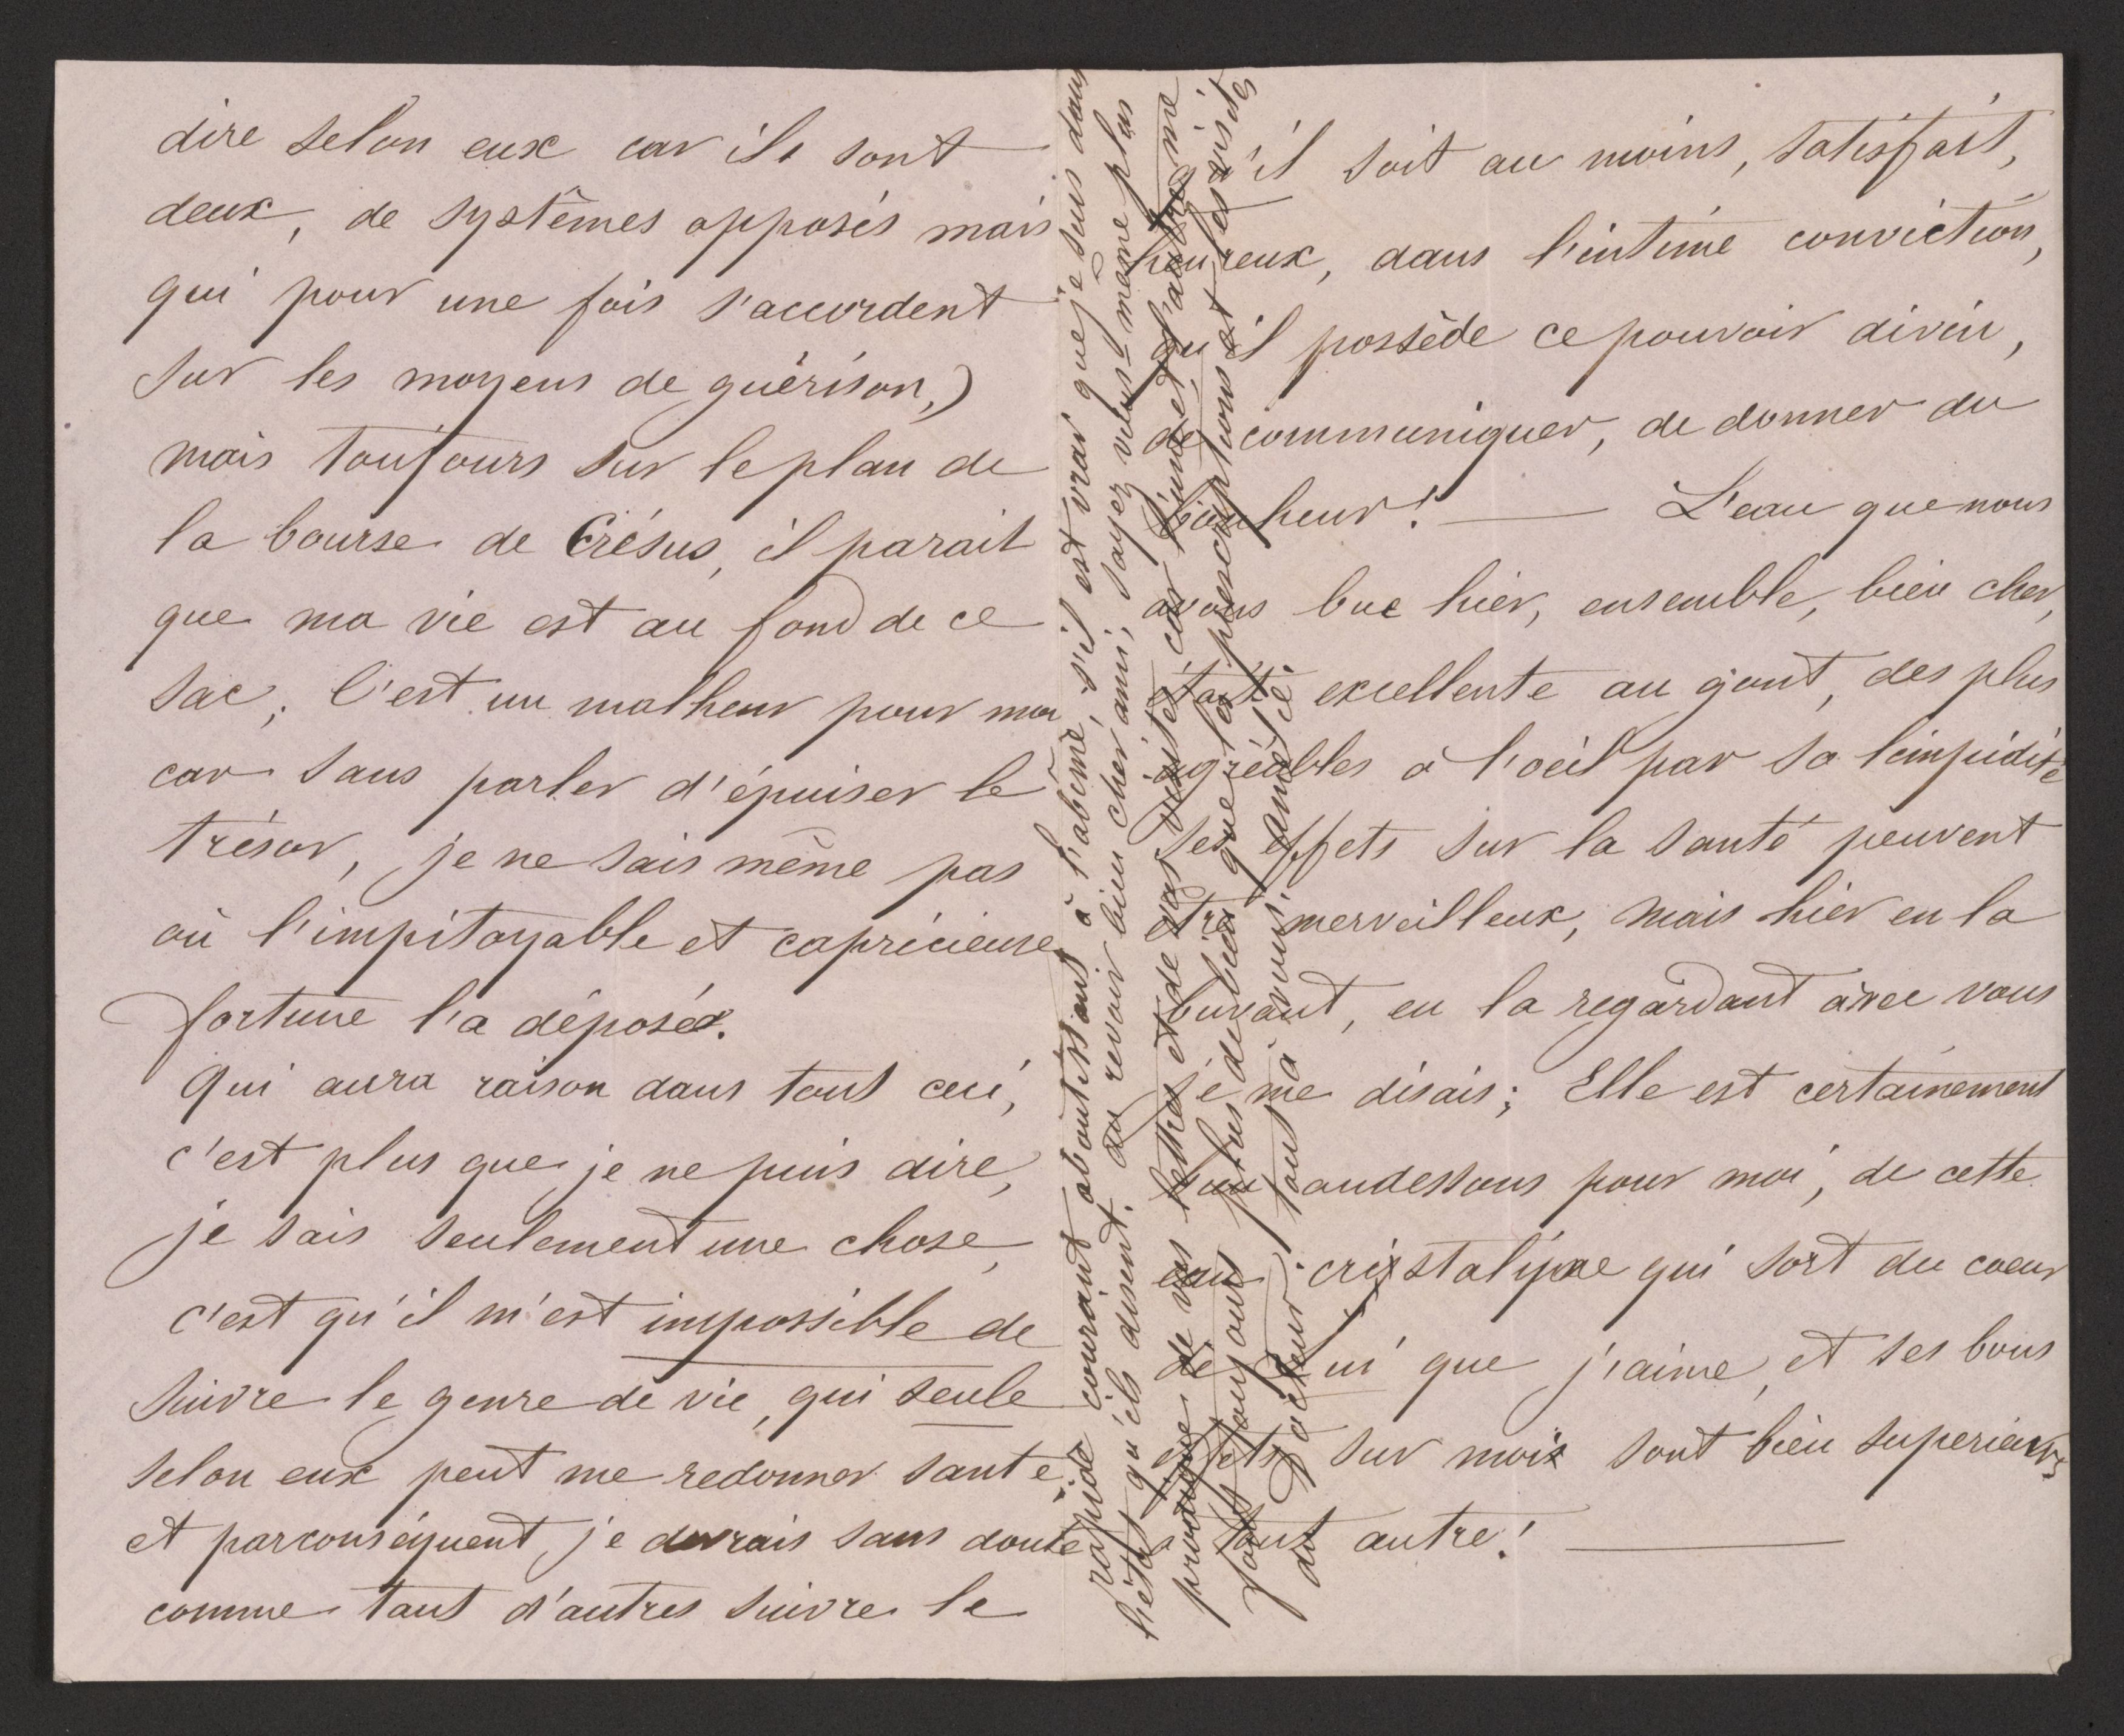 dire selon eux car ils sont
deux, de systêmes opposés mais
qui pour une fois s'accordent
sur les moyens de guérison,)
mais toujours sur le plan de
la bourse de Crésus, il parait
que ma vie est au fond de ce
sac, C'est un malheur pour moi
car sans parler d'épuiser le
trésor, je ne sais même pas
où l'impitoyable et capricieuse
fortune l'a déposée.
Qui aura raison dans tout ceci,
c'est plus que je ne puis dire,
je sais seulement une chose,
c'est qu'il m'est impossible de
suivre le genre de vie, qui seule
selon eux peut me redonner santé.
et parconséquent, je devrais sans doute
comme tant d'autres suivre le
rapide courant aboutissant à l'abîme, s'il est vrai que je suis dans
l'état qu'ils disent. au revoir bien cher ami; soyez vous-même plus
prodigue de vos lettres et de vos visites car l'une et l'autre me
font toujours plus de bien que les prescriptions et les visites
du Docteur. tout à vous. Amélie
qu'il soit au moins, satisfait,
heureux, dans l'intime conviction,
qu'il possède ce pouvoir divin,
de communiquer, de donner du
bonheur! — L'eau que nous
avons bue hier, ensemble, bien cher,
était excellente au gout, des plus
agréables à l'oeil par sa limpidité
ses effets sur la santé peuvent
être merveilleux, mais hier en la
buvant, en la regardant avec vous
je me disais; Elle est certainement
bien audessous pour moi, de cette
eau cristaline qui sort du coeur
de celui que j'aime, et ses bons
effets sur moi sont bien superieurs
à tout autre! —